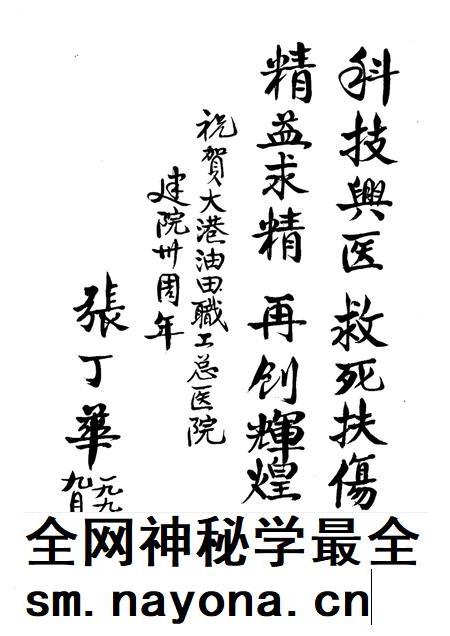 科技興医 救死扶傷
精益求精 再创輝煌
祝賀大港油田職工总医院
建院卅周年
張丁華
一九九
九月
全网神秘学最全
sm.nayona.cn